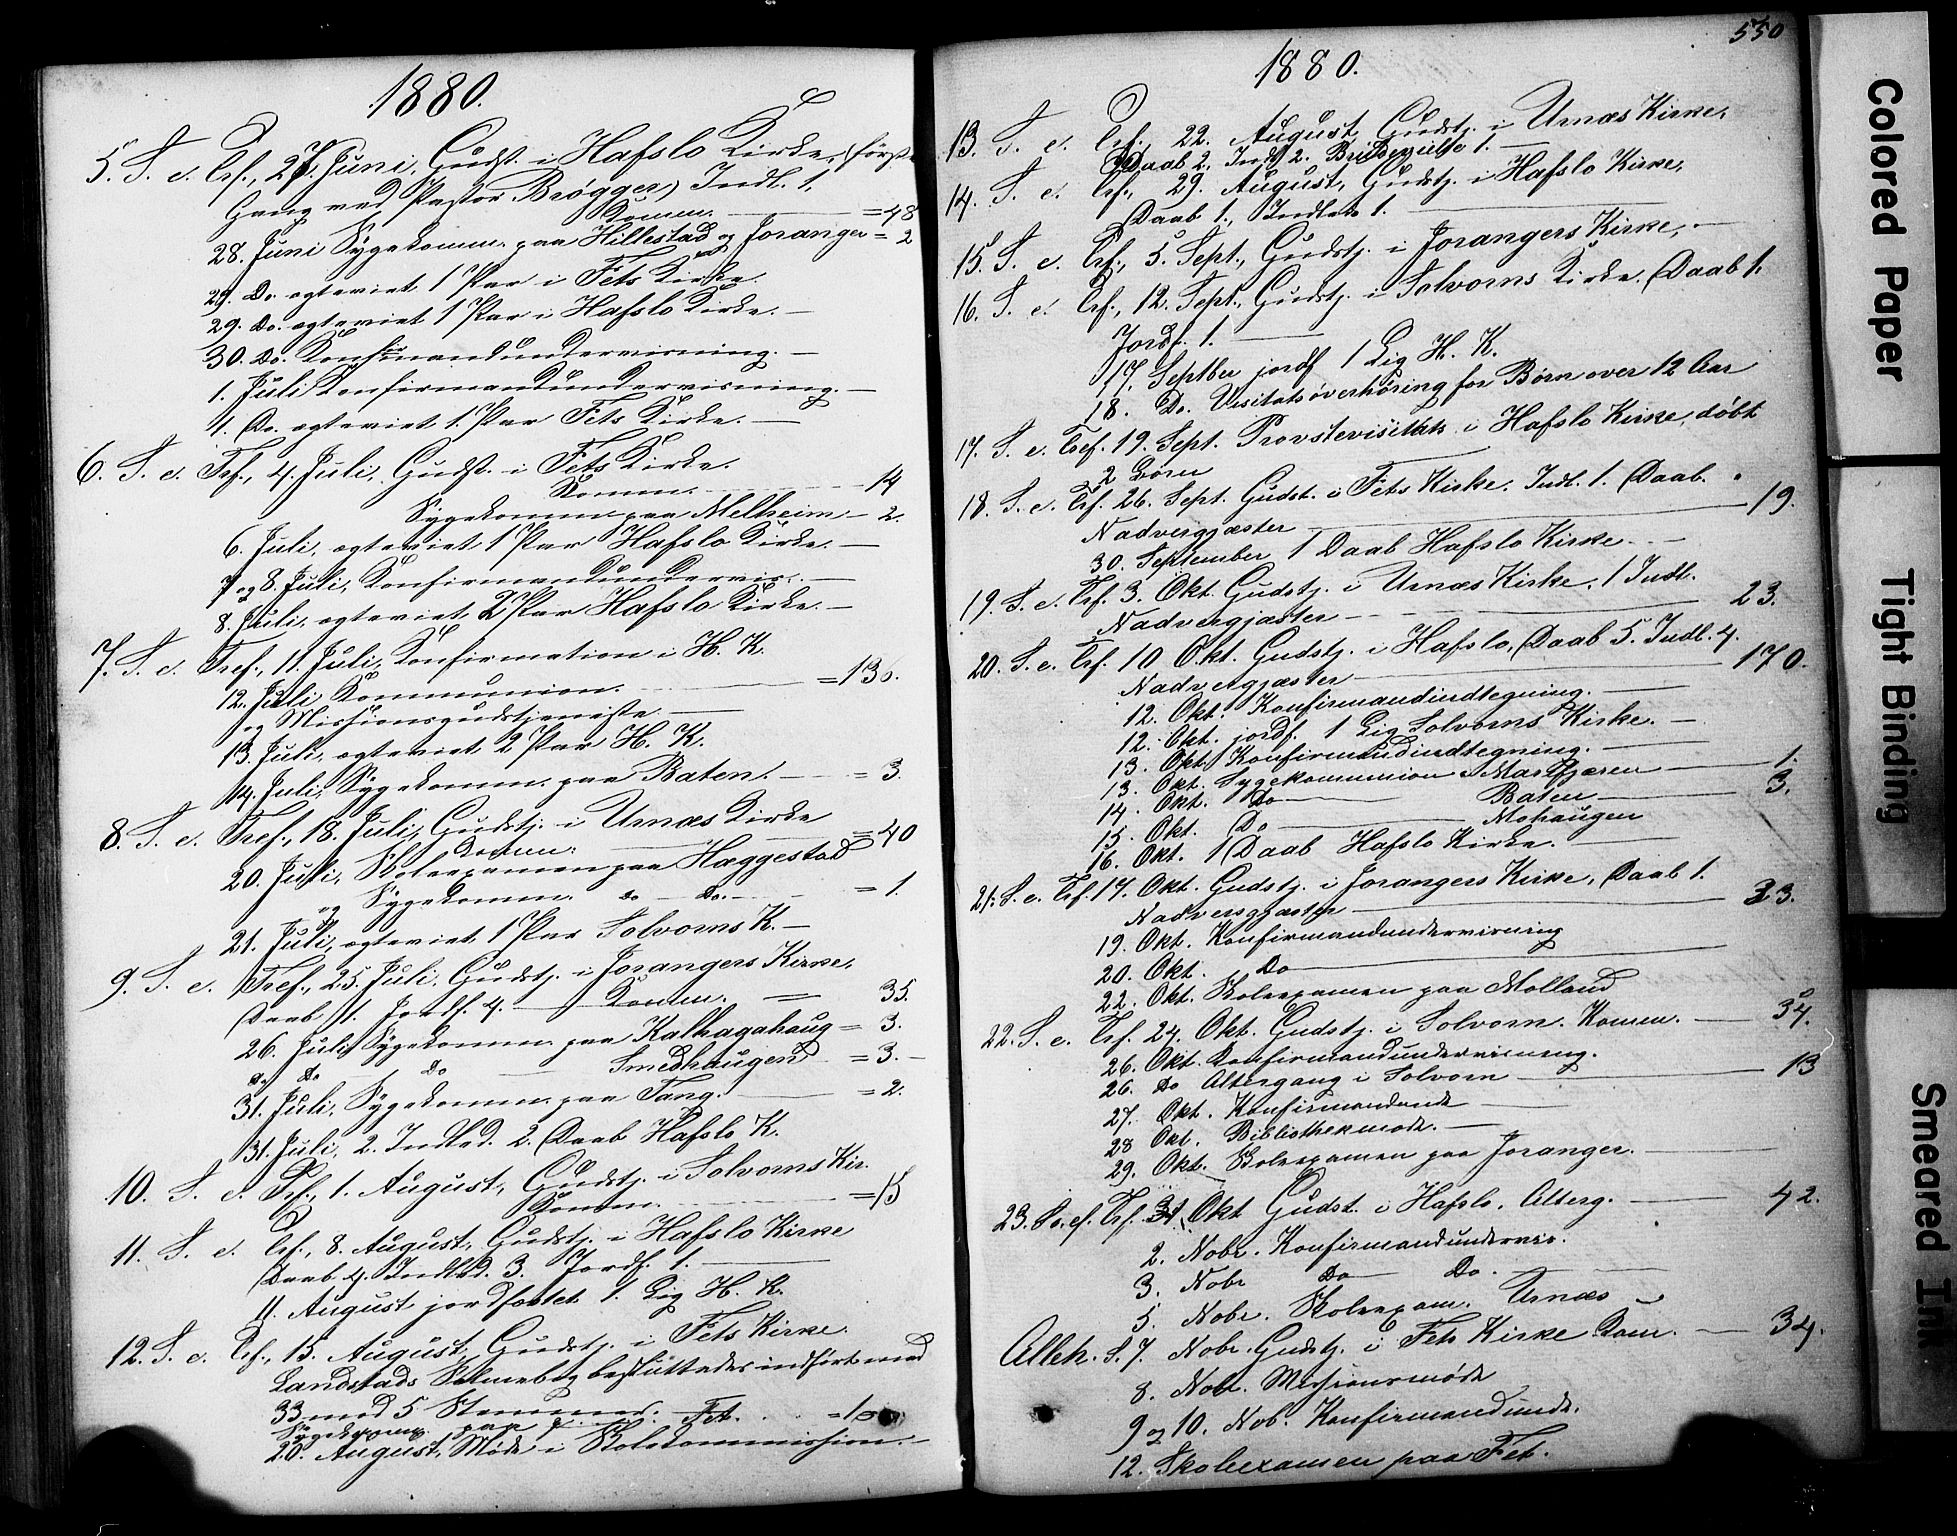 1880.
5. S. e. Trf., 27. Juni, Gudst. i Hafslo Kirke, (første
Gang ved Pastor Brøgger) Indl. 1.
Komm. = 48
28. Juni Sygekomm. paa Hillestad og Joranger = 2
29. Do. egteviet 1 Par i Fets Kirke.
29. Do. egteviet 1 Par i Hafslo Kirke. —
30. Do. Konfirmandundervisning. —
1. Juli Konfirmandundervisning. —
1. Do. egteviet 1. Par Fets Kirke. —
6. S. e. Tref., 4. Juli, Gudst. i Fets Kirke.
Komm. 14
Sygekomm. paa Melheim — 2.
6. Juli, egteviet 1 Par Hafslo Kirke. —
7 og 8. Juli, Konfirmandundervis. —
8. Juli, egteviet 2 Par Hafslo Kirke. —
7. S. e. Tref., 11. Juli, Konfirmation i H. K.
12. Juli Kommunion. = 136.
og Missionsgudstjeneste —
13. Juli, egteviet 2 Par H. K.
14. Juli, Sygekomm. paa Baten. — = 3.
8. S. e. Tref., 18. Juli, Gudstj. i Urnæs Kirke
Komm. = 40
20. Juli, Skoleexamen paa Hæggestad
og Sygekomm. do — Do. — = 1.
21. Juli, egteviet 1 Par Solvorns K. —
9. S. e. Tref., 25. Juli, Gudstj. i Jorangers Kirke,
Daab 1. Jordf. 4. — Komm. = 35.
26. Juli, Sygekomm. paa Kalhagahaug = 3.
Do Do Do — Smedhaugen = 3. —
31. Juli, Sygekomm. paa Tang. = 2.
31. Juli, 2. Indled. 2. Daab Hafslo K.
10. S. e. Trf., 1. August, Gudstj. i Solvorns Kir.
Komm. = 15
11. S. e. Trf., 8. August, Gudstj. i Hafslo Kirke
Daab 4. Indled. 3. Jordf. 1. —
11. August jordfæstet 1. Lig H. K.
12. S. e. Trf., 15. August, Gudstj. i Fets Kirke.
Landstads Salmebog besluttedes indført med
33 mod 5 Stemmer. Fet.
Sygekomm. paa
20. August, Møde i Skolekommission. —
550
1880.
13. S. e. Trf., 22. August, Gudstj. i Urnæs Kirke,
Daab 2, Indl. 2. Brudevielse 1. —
14. S. e. Trf., 29. August, Gudstj. i Hafslo Kirke,
Daab 1., Indled 1. —
15. S. e. Trf., 5. Sept., Gudstj. i Jorangers Kirke, —
16. S. e. Trf., 12. Sept., Gudstj. i Solvorns Kirke. Daab 1.
Jordf. 1. —
17. Septber jordf 1 Lig H. K.
18. Do. Visitatsoverhøring for Børn over 12 Aar
17. S. e. Tref. 19. Sept. Provstevisitats i Hafslo Kirke, døbt
2 Børn
18. S. e. Trf. 26. Sept. Gudst. i Fets Kirke. Indl. 1. Daab.
Nadvergjæster — 19.
30. September 1 Daab Hafslo Kirke. —
19. S. e. Trf. 3. Okt. Gudstj. i Urnæs Kirke. 1 Indl.
Nadvergjæster — 23.
20. S. e. Trf. 10 Okt. Gudstj. i Hafslo, Daab 5. Indl. 4.
Nadvergjæster — 170.
12. Okt. Konfirmandindtegning. —
12. Okt. jordf. 1 Lig Solvorns Kirke. —
13. Okt. Konfirmandindtegning. —
13. Okt. Sygekommunion i Marifjæren — 1.
14. Okt. Do — Baten — 3.
15. Okt. Do — Mohaugen
16. Okt. 1 Daab Hafslo Kirke. —
21. S. e. Trf. 17. Okt. Gudstj. i Jorangers Kirke, Daab 1.
Nadvergjæster — 33.
19. Okt. Konfirmandundervisning
20. Okt. Do —
22. Okt. Skoleexamen paa Molland
22. S. e. Trf. 24. Okt. Gudstj. i Solvorn. Komm. — 34.
26. Okt. Konfirmandundervisning.
26. Do Altergang i Solvorn — 13
27. Okt. Konfirmandund. —
28 Okt. Bibliothekmøde. —
29. Okt. Skoleexamen paa Joranger. —
23. S. e. Trf. 31. Okt Gudst. i Hafslo. Alterg. — 42.
2. Nobr. Konfirmandundervis.
3. Nobr Do Do. —
5. Nobr. Skoleexam. Urnæs —
Alleh. S. 7. Nobr. Gudstj. i Fets Kirke Kom. — 34.
8. Nobr. Missionsmøde
9 og 10. Nob. Konfirmandund.
12. Skoleexamen paa Fet.
Colored Paper
Tight Binding
Smeared Ink